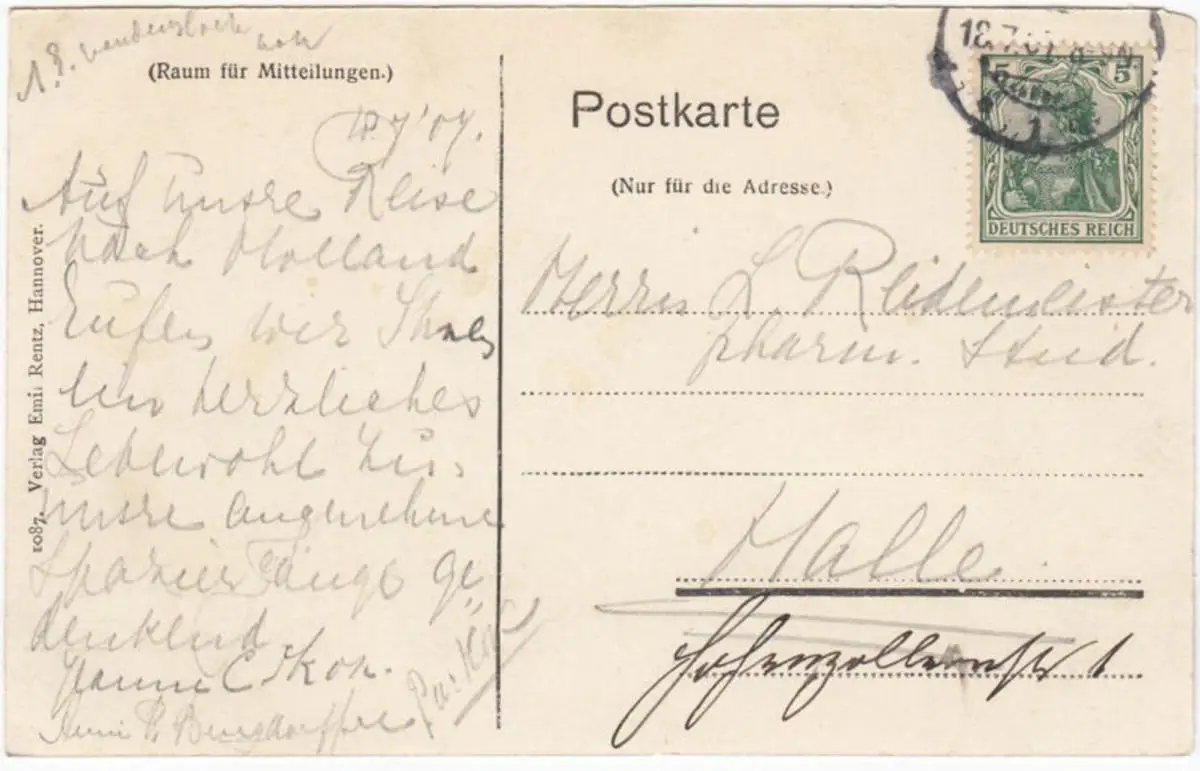 (Raum für Mitteilungen.)
7'07.
Auf unsre Reise
nach Holland
rufen wir Ihnen
ein herzliches
Lebewohl zu,
unsre angenehme
Spaziergänge ge-
denkend
1087. Verlag Emil Rentz, Hannover.
Postkarte
(Nur für die Adresse.)
5 5
DEUTSCHES REICH
Herrn L. Reidemeister
pharm. stud.
Halle
Hohenzollernstr 1